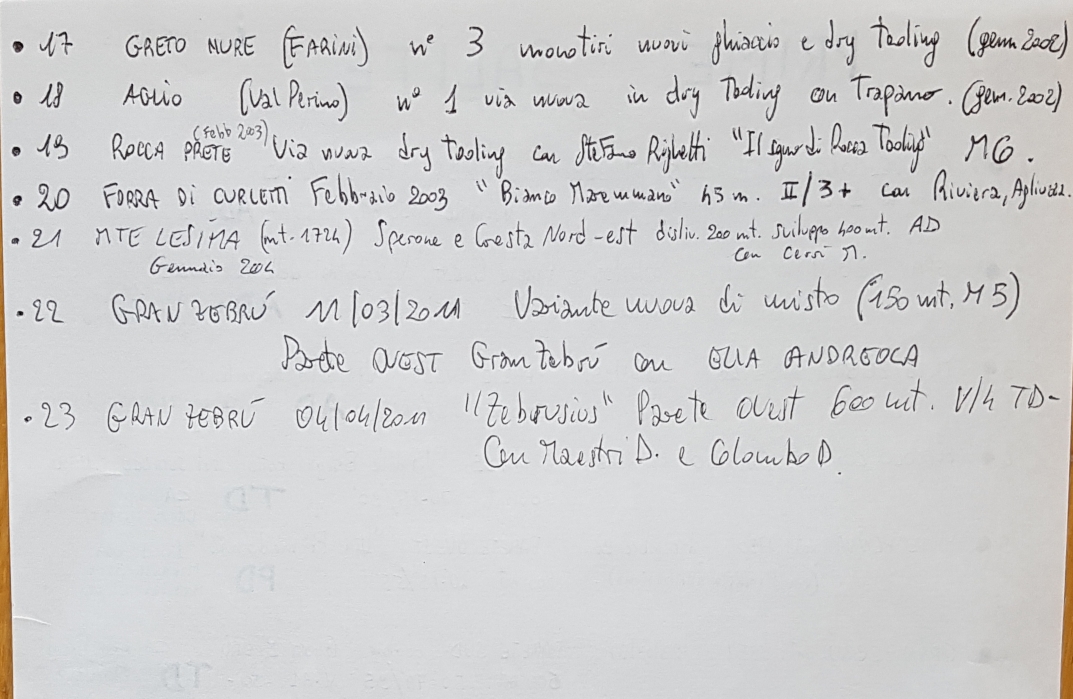 • 17 GRETO NURE (FARINI) n° 3 monotiri nuovi ghiaccio e dry tooling (genn 2002)
• 18 AGLIO (Val Perino) n° 1 via nuova in dry Tooling con Trapano. (gen. 2002)
• 19 ROCCA PRETE (Febb 2003) Via nuova dry tooling con Stefano Righetti "Il signor di Rocca Tooling" M6.
• 20 FORRA DI CURLETTI Febbraio 2003 "Bianco Maremmano" 45 m. II/3+ con Riviera,
• 21 MTE LESIMA (mt. 1724) Sperone e Cresta Nord-est disliv. 200 mt. sviluppo 400 mt. AD
Gennaio 2004 con Cersi M.
• 22 GRAN ZEBRÚ 11/03/2011 Variante nuova di misto (150 mt, M5)
Parete OVEST Gran Zebrú con ELIA ANDREOLA
• 23 GRAN ZEBRÚ 04/04/2011 "Zebrusius" Parete Ovest 600 mt. V/4 TD-
Con Maestri D. e Colombo D.